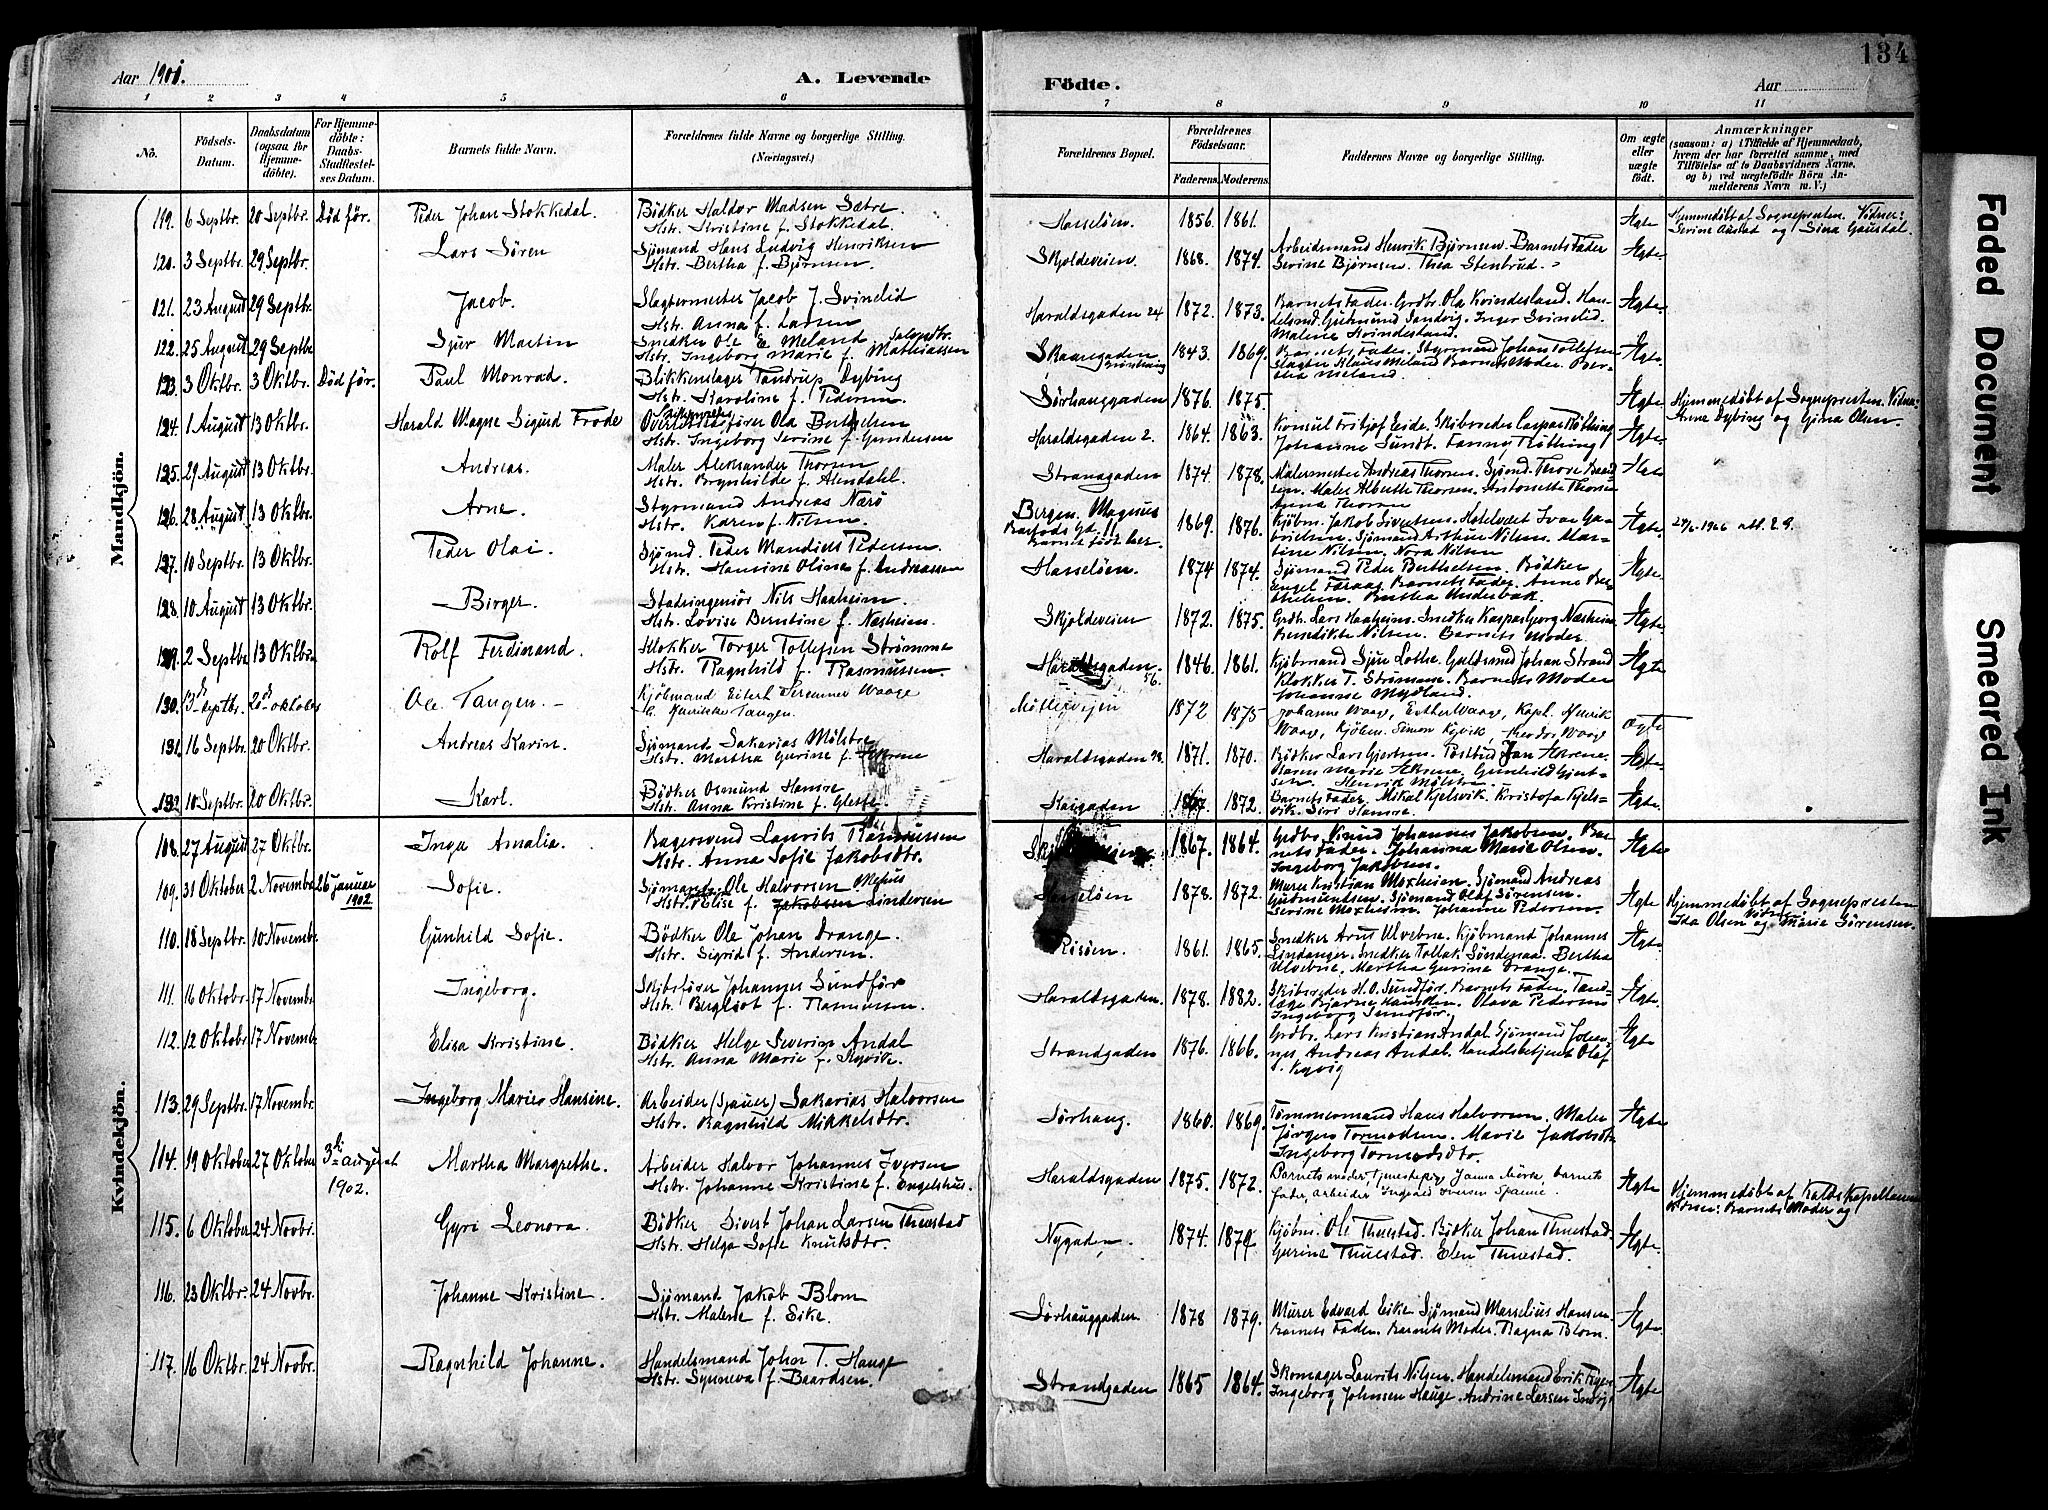 134
Aar 1901. A. Levende Födte. Aar
1 2 3 4 5 6 7 8 9 10 11
No. Födsels-Datum. Daabsdatum (ogsaa for Hjemme-döbte). For Hjemme-döbte: Daabs-Stadfæstel-ses Datum. Barnets fulde Navn. Forældrenes fulde Navne og borgerlige Stilling. (Næringsvei.) Forældrenes Bopæl. Forældrenes Födselsaar. Faderens. Moderens. Faddernes Navne og borgerlige Stilling. Om ægte eller uægte födt. Anmærkninger (saasom: a) i Tilfælde af Hjemmedaab, hvem der har forrettet samme, med Tilföielse af to Daabsvidners Navne, og b) ved uægtefödte Börn An-melderens Navn m. V.)
Mandkjön.
119. 6 Septbr. 20 Septbr. Död för. Peder Johan Stokkedal. Bödker Haldor Madsen Sætre. Hstr. Kristine f. Stokkedal. Hasselöen. 1856. 1861. Ægte Hjemmedöbt af Sognepresten. Vidner: Sevine Austad og Sina Gausdal.
120. 3 Septbr. 29 Septbr. Lars Sören Sjömand Hans Ludvig Henriksen Hstr. Bertha f. Björnsen. Skjoldeveien. 1868. 1874. Arbeidsmand Henrik Björnsen. Barnets Fader Sevine Björnsen. Thea Stenbrud. Ægte
121. 23 August 29 Septbr. Jacob. Slagtermester Jacob J. Svinelid Hstr. Anna f. Larsen Haraldsgaden 24 1872. 1873. Barnets Fader. Grdbr. Ola Kvindesland. Han-delsmd. Gudmund Sandvig. Inger Svinelid. Malene Kvindesland. Ægte.
122. 25 August 29 Septbr Sjur Martin Snedker Ole E. Meland Hstr. Ingeborg Marie f. Mathiassen Skaaregaden 1843. 1869. Barnets Fader. Styrmand Johan Tollefsen Klaus Meland Barnets Moder. Ber-tha Meland. Ægte.
123. 3 Oktbr. 3 Oktbr. Död för. Paul Monrad. Blikkenslager Tandrup Dybing Hstr. Karoline f. Pedersen. Sörhauggaden 1876. 1875. Ægte Hjemmedöbt af Sognepresten. Vidner: Arne Dybing og Gina Olsen.
124. 1 August 13 Oktbr. Harald Magne Sigurd Frode Ola Berthelsen Hstr. Ingeborg Serine f. Gundersen Haraldsgaden 2. 1864. 1863. Konsul Fritjof Eide. Skibsreder Caspar Röthing Johanne Sundt. Fanny Röthing Ægte.
125. 29 August 13 Oktbr. Andreas. Maler Aleksander Thorsen Hstr. Brynhilde f. Alendahl. Strandgaden 1874. 1878. Malermester Andreas Thorsen. Sjömd. Thore Baard-sen. Maler Alberth Thorsen. Antonette Thorsen Anna Thorsen Ægte
126. 28 August 13 Oktbr. Arne. Styrmand Andreas Nærö Hstr. Karen f. Nilsen. Bergen. Magnus Barfods Gd. 11 Barnet födt her. 1869. 1876. Kjöbm. Jakob Sivertsen. Hotelvært Ivar Ga-brielsen. Sjömand Arthur Nilsen. Mar-tine Nilsen. Nora Nilsen Ægte. 27/6-1966 att. 29.
127. 10 Septbr. 13 Oktbr. Peder Olai. Sjömd. Peder Mandius Pedersen. Hstr. Hansine Oline f. Andreassen Hasselöen. 1874 1874. Sjömand Peder Berthelsen. Bödker Engel Faraas Barnets Fader. Anne Ber-thelsen. Bertha Underbak. Ægte.
128. 10 August 13 Oktbr. Birger. Stadsingeniör Nils Haaheim. Hstr. Lovise Berntine f. Næsheim. Skjoldeveien 1872. 1875. Grdbr. Lars Haaheim. Snedker Kasparberg Næsheim Benedikte Nilsen. Barnets Moder. Ægte.
129. 2 Septbr 13 Oktbr. Rolf Ferdinand. Klokker Torger Tollefsen Strömme Hstr. Ragnhild f. Rasmussen. Haraldsgaden 56. 1846. 1861. Kjöbmand Sjur Lothe. Guldsmd. Johan Strand Klokker T. Strömme. Barnets Moder Johanne Mydland. Ægte
130. 13 Septbr. 20 oktober Ole Tangen. Kjöbmand Eilert Severiner Waage Henrikke Tangen. Möllevejen 1872 1875 Johanne Waage, Esther Waage, Kapt. Henrik Waage, Kjöbm. Simon Kyvik, Theodor Waage ægte
131. 16 Septbr. 20 Oktbr. Andreas Karin. Sjömand Sakarias Mölstre Hstr. Martha Gurine f. Haraldsgaden 98. 1871. 1870. Bödker Lars Gjertsen. Postbud Jan Gunhild Gjert-sen. Henrik Mölstre. Ægte.
132 10 Septbr. 20 Oktbr. Karl. Bödker Osmund Hamre Hstr. Anna Kristine f. Glette. Kaigaden 1867. 1872. Barnets Fader. Mikal Kjelsvik. Kristofa Kjels-vik. Siri Hamre. Ægte.
Kvindekjön.
108. 27 August 27 Oktbr. Inga Amalia. Bagersvend Laurits Rasmussen Hstr. Anna Sofie Jakobsdtr. 1867. 1864. Grdbr. Knud Johannes Jakobsen. Bar-nets Fader. Johanna Marie Olsen. Ingeborg Jakobsen. Ægte
109. 31 Oktober 2 November 26 januar 1902. Sofie. Sjömand Ole Halvorsen Mehus Hstr. Elise f. Jakobsen Lindersen Hasselöen 1878. 1872. Murer Kristian Moxheim. Sjömand Andreas Gudmundsen. Sjömand Olaf Sörensen. Sevine Moxheim. Johanne Pedersen. Ægte Hjemmedöbt af Sognepresten Vidner: Ida Olsen og Marie Sörensen.
110. 18 Septbr. 10 Novembr. Gunhild Sofie. Bödker Ole Johan Drange. Hstr. Sigrid f. Andersen. Risöen. 1861. 1865. Snedker Arut Ulvebne. Kjöbmand Johannes Lindanger. Snedker Tollak Söndenaa. Bertha Ulvebne. Martha Gurine Drange. Ægte.
111. 16 Oktobr. 17 Novembr. Ingeborg. Skibsförer Johannes Sundför Hstr. Bergliot f. Rasmussen. Haraldsgaden. 1878. 1882. Skibsreder H.O. Sundför. Barnets Fader. Tand-læge Bjarne Hausken. Olava Pedersen Ingeborg Sundför. Ægte.
112. 12 Oktobr. 17 Novembr Elisa Kristine. Bödker Helge Severin Andal Hstr. Anna Marie f. Kyvik. Strandgaden 1876. 1866. Grdbr. Lars Kristian Andal. Sjömand Johan-nes Andreas Andal. Handelsbetjent Olaf Kyvig Ægte
113. 29 Septbr. 17 Novembr. Ingeborg Marie Hansine. Arbeider (Sjauer) Sakarias Halvorsen Hstr. Ragnhild Mikkelsdtr. Sörhaug. 1860. 1869. Tömmermand Hans Halvorsen. Maler Jörgen Tormodsen. Marie Jakobsdtr. Ingeborg Tormodsdtr. Ægte.
114. 19 Oktober 27 Oktober 3 august 1902. Martha Margrethe. Arbeider Halvor Johannes Iversen Hstr. Johanne Kristine f. Engelshus. Haraldsgaden 1875. 1872. Barnets moder, tjenestepige Janna Mörk, barnets fader, arbeider Ingvald Iversen Spanne. Ægte Hjemmedöbt af Kaldskapellanen Vidner: Barnets Moder og
115. 6 Oktober 24 Novbr. Gyri Leonora. Bödker Sivert Johan Larsen Thuestad Hstr. Helga Sofie Knutsdtr. Nygaden. 1874. 1879. Kjöbm. Ole Thuestad. Bödker Johan Thuestad. Gurine Thuestad. Elen Thuestad. Ægte.
116. 23 Oktbr. 24 Novbr. Johanne Kristine. Sjömand Jakob Blom Hstr. Malene f. Eike. Sörhauggaden. 1878 1879. Murer Edvard Eike. Sjömand Marselius Hansen. Barnets Fader. Barnets Moder. Ragna Blom. Ægte.
117. 16 Oktbr. 24 Novbr. Ragnhild Johanne. Handelsmand John T. Hauge Hstr. Synneva f. Baardsen. Strandgaden 1865 1864. Skomager Laurits Nilsen. Handelsmand Erik Ingeborg Johnsen Hauge. Andrine Larsen Ægte
Faded Document
Smeared Ink